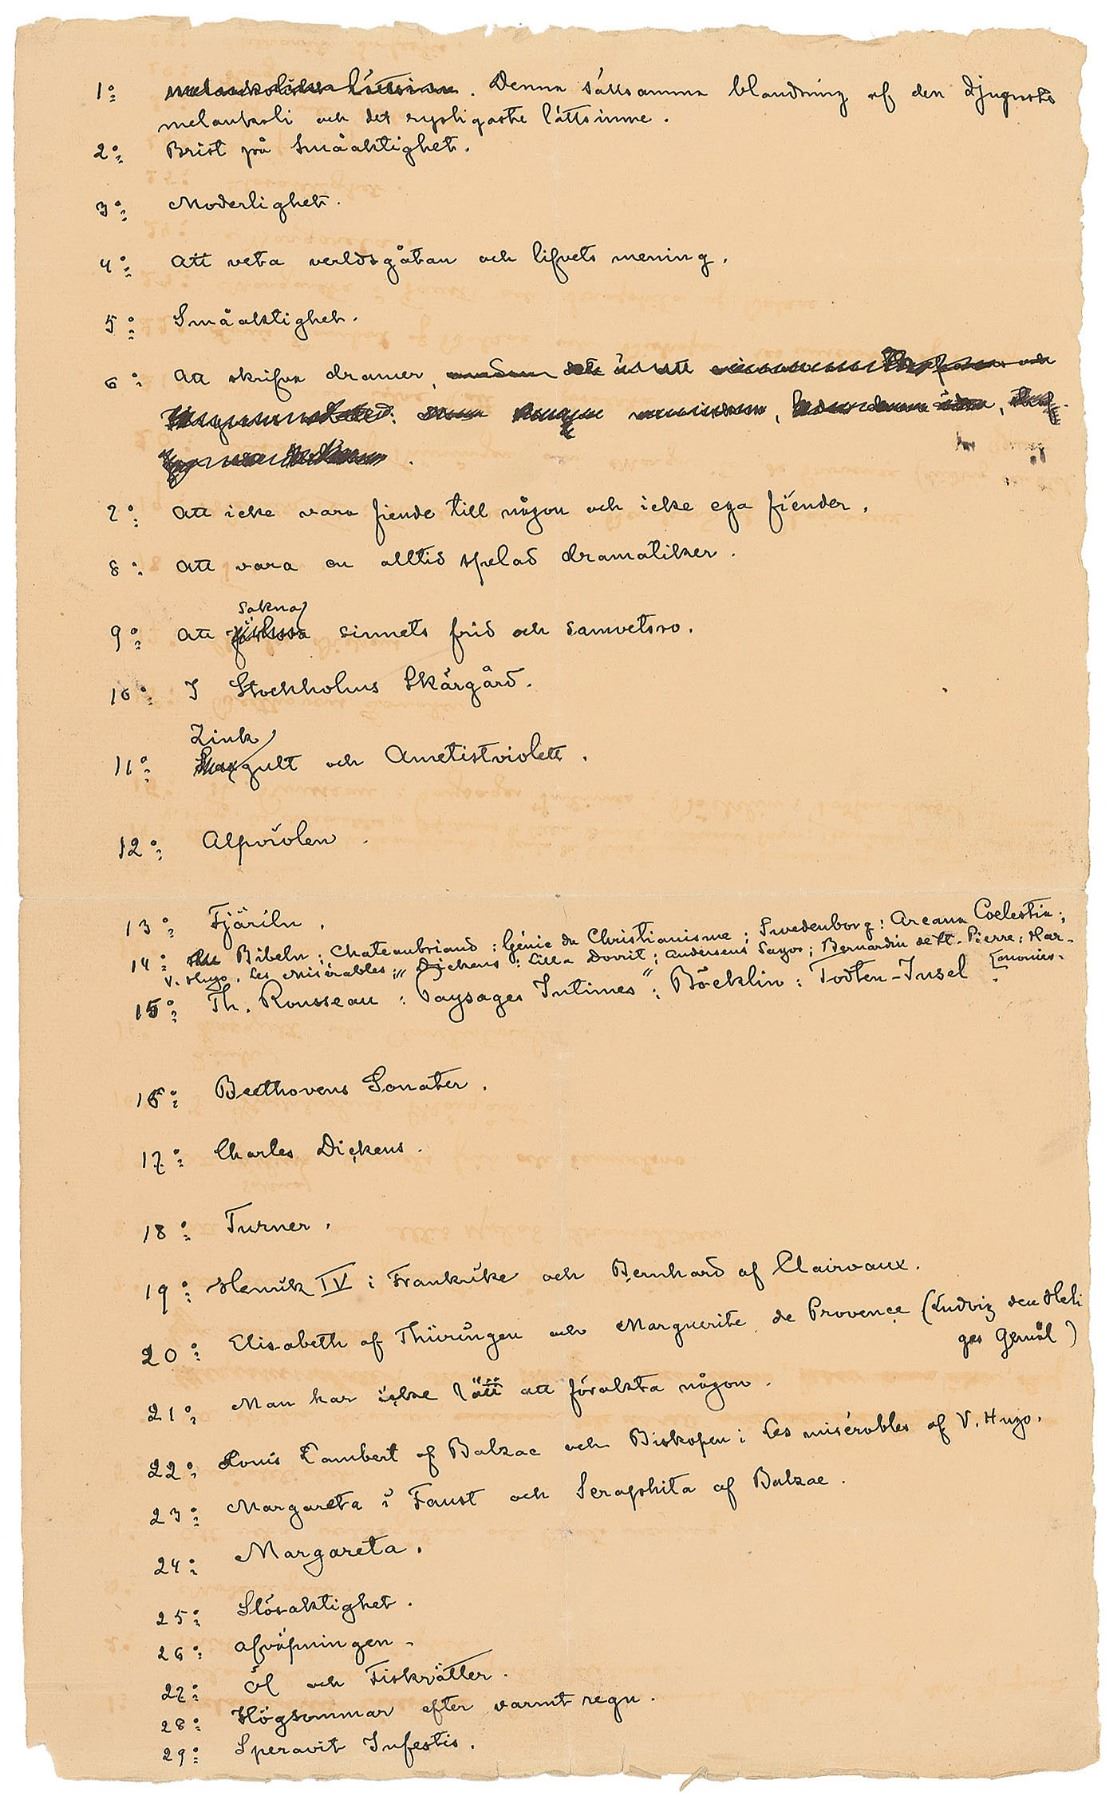 1o: melankoliska lättsinne. Denna sällsamma blandning af den djupaste
melankoli och det rysligaste lättsinne.
2o: Brist på Småaktighet.
3o: Moderlighet.
4o: Att veta verldsgåtan och lifvets mening.
5o: Småaktighet.
6o: Att skrifva dramer,
7o: Att icke vara fiende till någon och icke ega fiender.
8o: Att vara en alltid spelad dramatiker.
sakna
9o: Att sinnets frid och samvetsro.
10o: I Stockholms Skärgård.
Zink
11o: gult och Ametistviolett.
12o: Alpviolen.
13o: Fjäriln.
14o: Bibeln; Chateaubriand: Génie du Christianisme; Swedenborg: Arcana Coelestia;
V. Hugo, Les Misérables; Dickens: Lilla Dorrit; Andersens Sagor; Bernardin de St. Pierre; Har-
monies.
15o: Th. Rousseau: "Paysages Intimes"; Böcklin: Todten-Insel.
16o: Beethovens Sonater.
17o: Charles Dickens.
18o: Turner.
19o: Henrik IV i Frankrike och Bernhard af Clairvaux.
20o: Elisabeth af Thüringen och Marguerite de Provence (Ludvig den Heli
ges Gemål)
21o: Man har icke lätt att förakta någon.
22o: Louis Lambert af Balzac och Biskopen i Les misérables af V. Hugo.
23o: Margareta i Faust och Seraphita af Balzac.
24o: Margareta.
25o: Slösaktighet.
26o: Afväpningen.
27o: Öl och Fiskrätter.
28o: Högsommar efter varmt regn.
29o: Speravit Infestis.